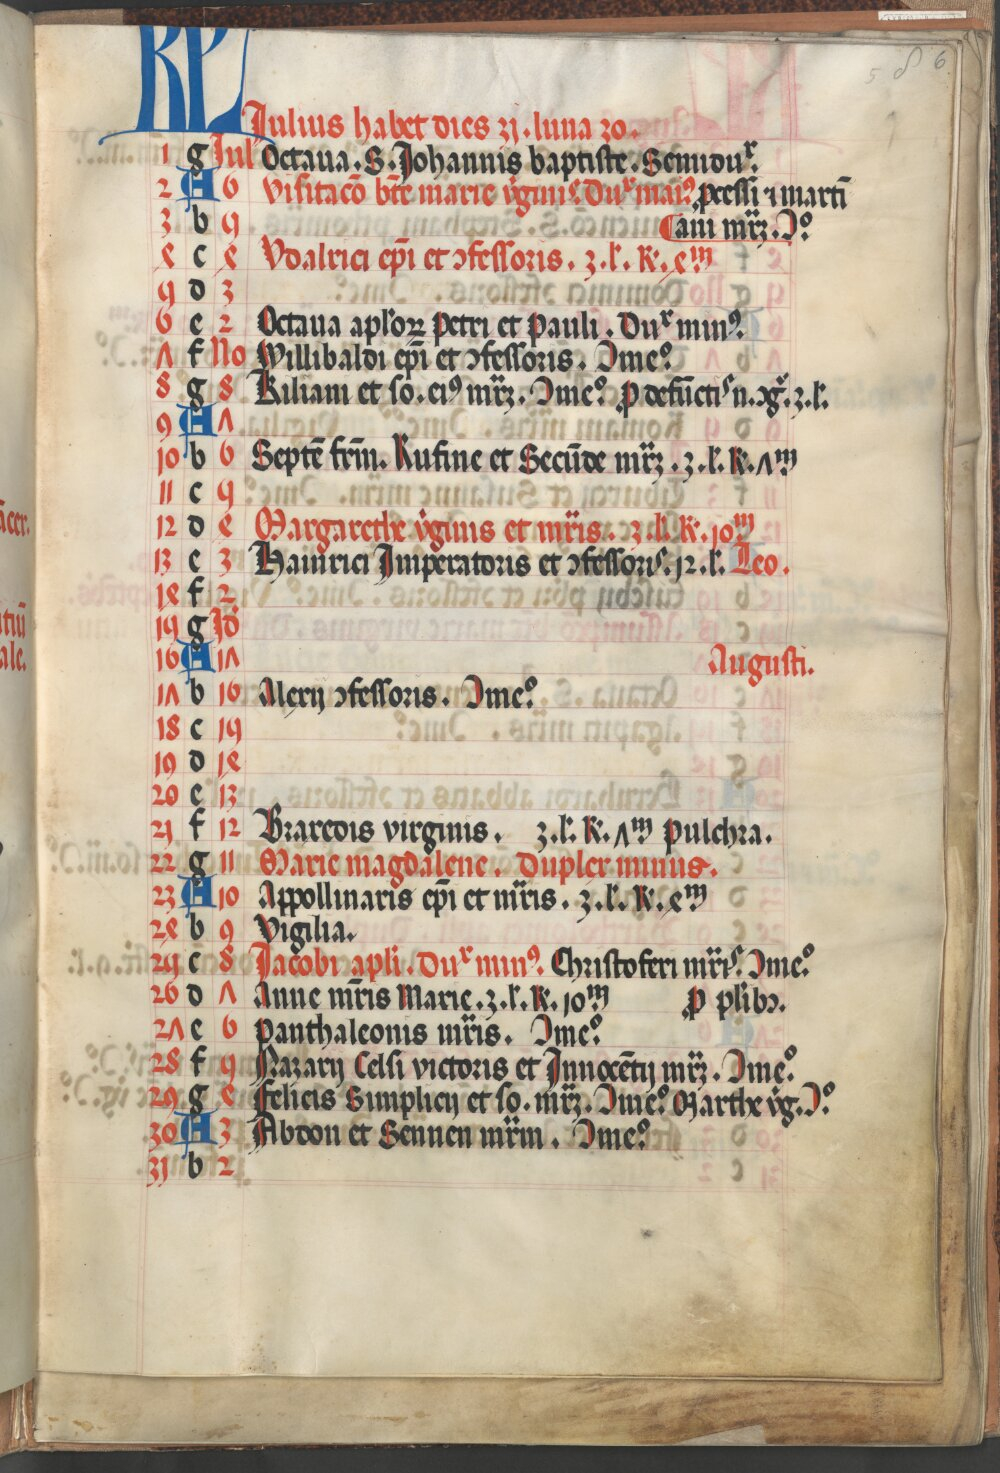 5 8 6
KL
Julius habet dies 31. luna 30.
1 g Jul Octaua. S. Johannis baptiste. Semiduˣ.
2 A 6 Visitacō btē marie v̄gīnis. Duˣ maiꝰ. pcessi ⁊ marti
3 b 9 ani mr̄ꝝ. Jº
e c e Vdalrici ep̄i et ↄfessoris. 3. l'. K. eᵐ
9 d 3
6 e 2 Octaua apl'oꝝ Petri et Pauli. Duˣ minꝰ.
Λ f No Willibaldi ep̄i et ↄfessoris. Jmeº.
8 g 8 Kiliani et so. eiꝰ mr̄ꝝ. Jmeº. ꝓ defūctis n. ↄg̃. 3. l'.
9 A Λ
10 b 6 Septē frm̄. Rufine et Secūde mr̄ꝝ. 3. l'. K. Λᵐ
11 c 9
12 d e Margarethe v̄ginis et mr̄is. 3. l'. K. 10ᵐ
13 e 3 Hainrici Imperatoris et ↄfessoris. 12. l'. Leo.
1e f 2
19 g Jd
16 A 1Λ Augusti.
1Λ b 16 Alexij ↄfessoris. Jmeº.
18 c 19
19 d 1e
20 e 13
21 f 12 Braxedis virginis. 3. l'. K. Λᵐ Pulchra.
22 g 11 Marie magdalene. Duplex minus.
23 A 10 Appollinaris ep̄i et mr̄is. 3. l'. K. eᵐ
2e b 9 Vigilia.
29 c 8 Jacobi apli. Duˣ minꝰ. Christoferi mr̄is. Jmeº.
26 d Λ Anne mr̄is Marie. 3. l'. K. 10ᵐ ꝓ pl'ibꝫ.
2Λ e 6 Panthaleonis mr̄is. Jmeº.
28 f 9 Nazarij Celsi victoris et Innocētij mr̄ꝝ. Jmeº.
29 g e Felicis Simplicij et so. mr̄ꝝ. Jmeº. Marthe v̄g. Jº.
30 A 3 Abdon et Sennen mr̄m. Jmeº.
31 b 2